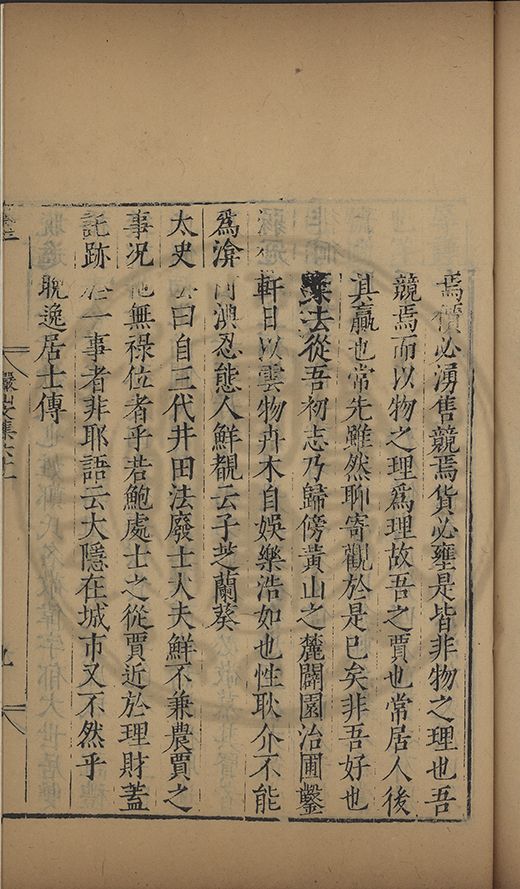 焉價必湧售競焉貨必壅是皆非物之理也吾
競焉而以物之理爲理故吾之賈也常居人後
其贏也常先雖然聊寄觀於是已矣非吾好也
棄法從吾初志乃歸傍黃山之麓闢園治圃鑿
軒日以雲物卉木自娛樂浩如也性耿介不能
爲渝㴸涊態人鮮覩云子芝蘭葵
太史公曰自三代井田法廢士大夫鮮不兼農賈之
事況他無祿位者乎若鮑處士之從賈近於理財蓋
託跡一事者非耶語云大隱在城市又不然乎
晚逸居士傳
巖棲集六十
九